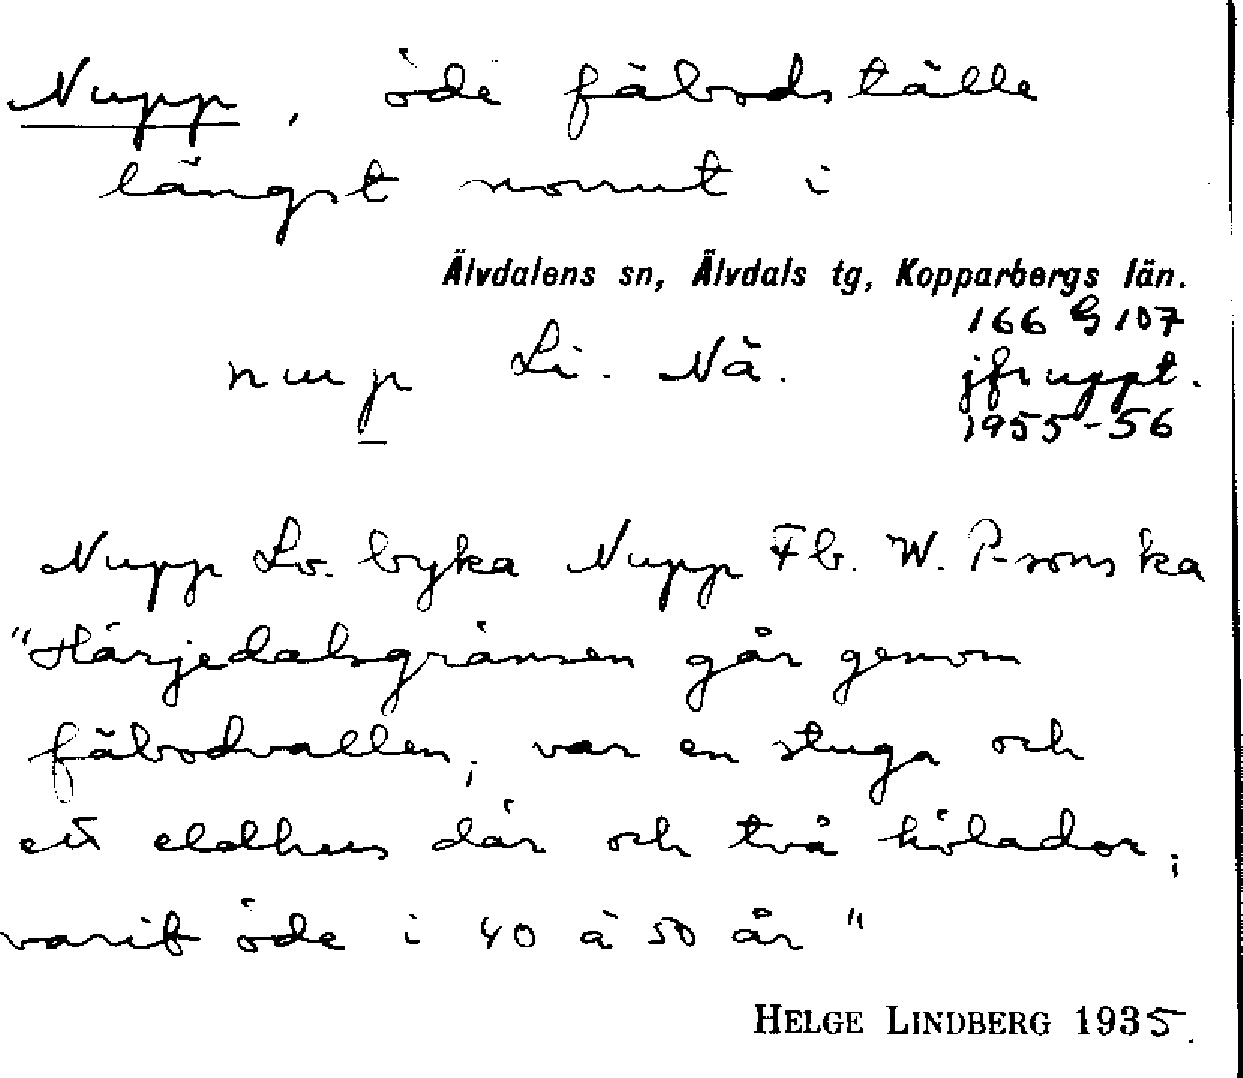 Nupp, öde fäbodställe
längst norrut i
Älvdalens sn, Älvdals tg, Kopparbergs län.
166 G 107
nup Li. Nä. jfr uppt.
1955-56
Nupp Lo. byka Nupp Fb. W. P-sons ka
"Härjedalsgränsen går genom
fäbodvallen; var en stuga och
ett eldhus där och två hölador;
varit öde i 40 à 50 år"
HELGE LINDBERG 1935.